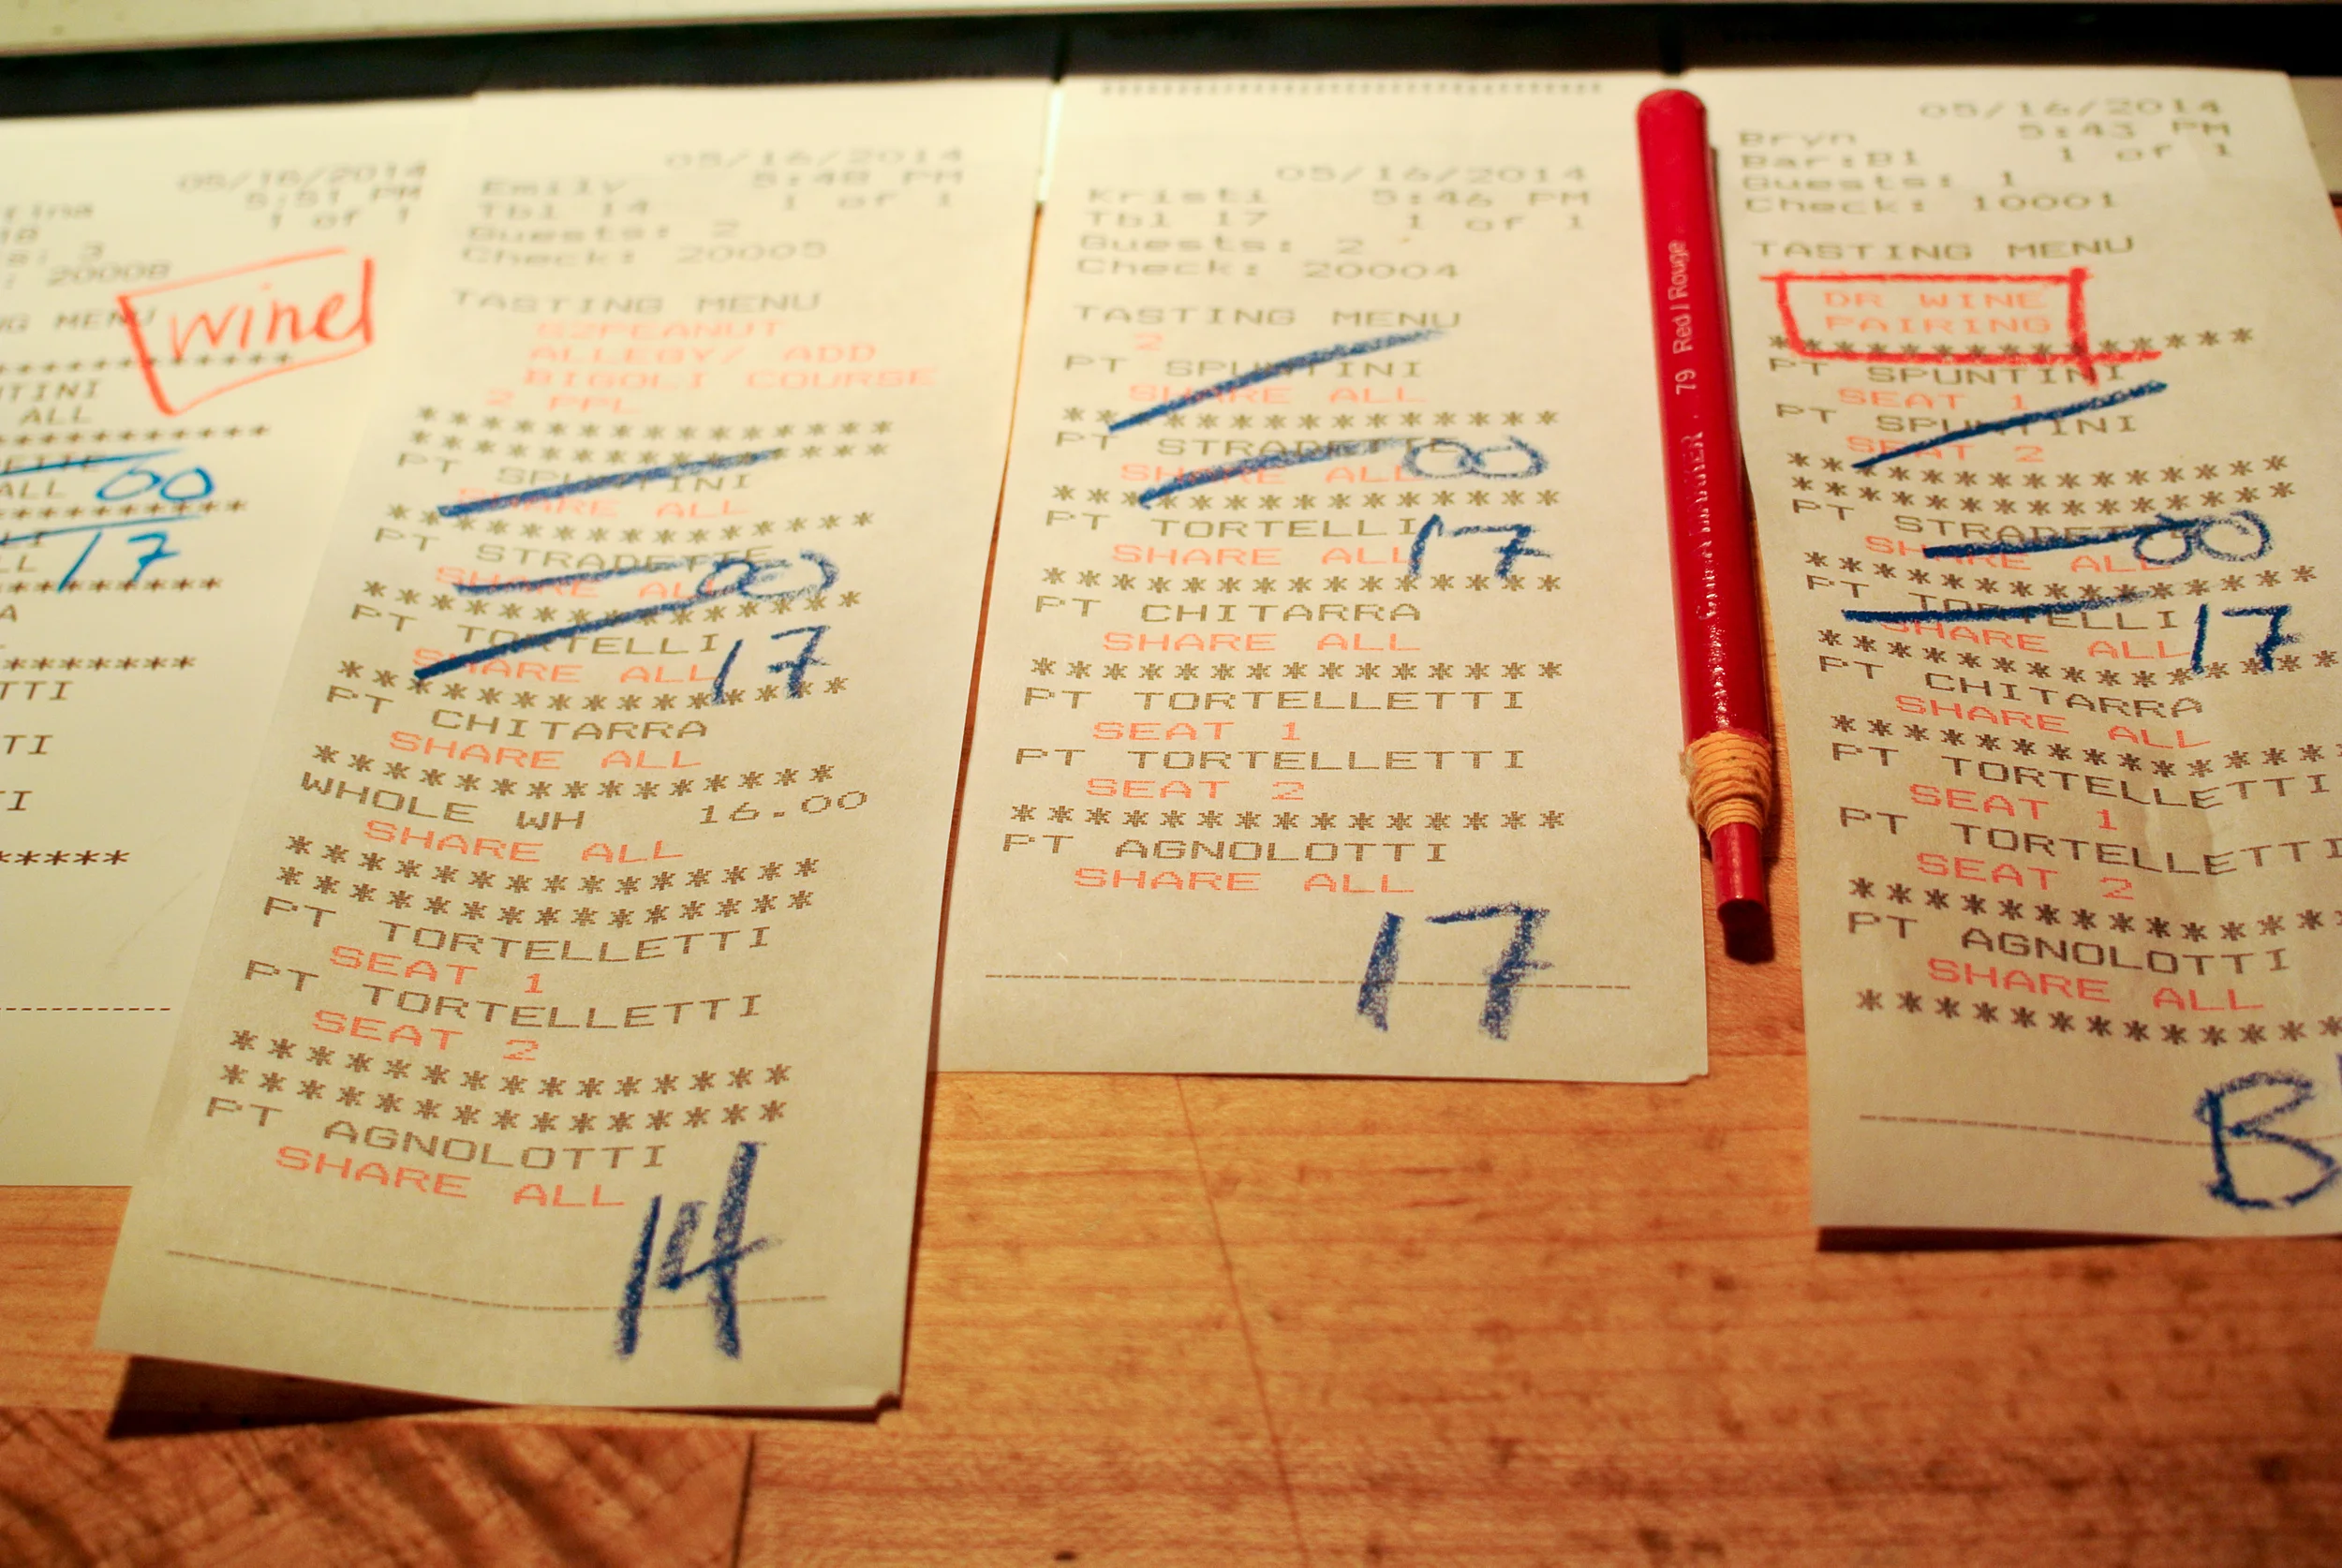 05/16/2014
5:51 PM
1 of 1
20008
MENU
wine
ALL
00
17
*******
TTI
TI
I
*****
05/16/2014
Emily 5:48 PM
Tbl 14 1 of 1
Guests: 2
Check: 20005
TASTING MENU
S2PEANUT
ALLEGY/ ADD
BIGOLI COURSE
2 PPL
***************
***************
PT SPUNTINI
SHARE ALL
***************
PT STRADETTE
SHARE ALL 00
***************
PT TORTELLI
SHARE ALL 17
***************
PT CHITARRA
SHARE ALL
***************
WHOLE WH 16.00
SHARE ALL
***************
***************
PT TORTELLETTI
SEAT 1
PT TORTELLETTI
SEAT 2
***************
***************
PT AGNOLOTTI
SHARE ALL
14
05/16/2014
Kristi 5:46 PM
Tbl 17 1 of 1
Guests: 2
Check: 20004
TASTING MENU
2
PT SPUNTINI
SHARE ALL
***************
PT STRADETTE
SHARE ALL 00
***************
PT TORTELLI
SHARE ALL 17
***************
PT CHITARRA
SHARE ALL
***************
PT TORTELLETTI
SEAT 1
PT TORTELLETTI
SEAT 2
***************
PT AGNOLOTTI
SHARE ALL
17
79 Red | Rouge
05/16/2014
Bryn 5:43 PM
Bar:B1 1 of 1
Guests: 1
Check: 10001
TASTING MENU
DR WINE
PAIRING
***************
PT SPUNTINI
SEAT 1
PT SPUNTINI
SEAT 2
***************
***************
PT STRADETTE
SHARE ALL 00
***************
PT TORTELLI
SHARE ALL 17
***************
PT CHITARRA
SHARE ALL
***************
PT TORTELLETTI
SEAT 1
PT TORTELLETTI
SEAT 2
***************
PT AGNOLOTTI
SHARE ALL
***************
B